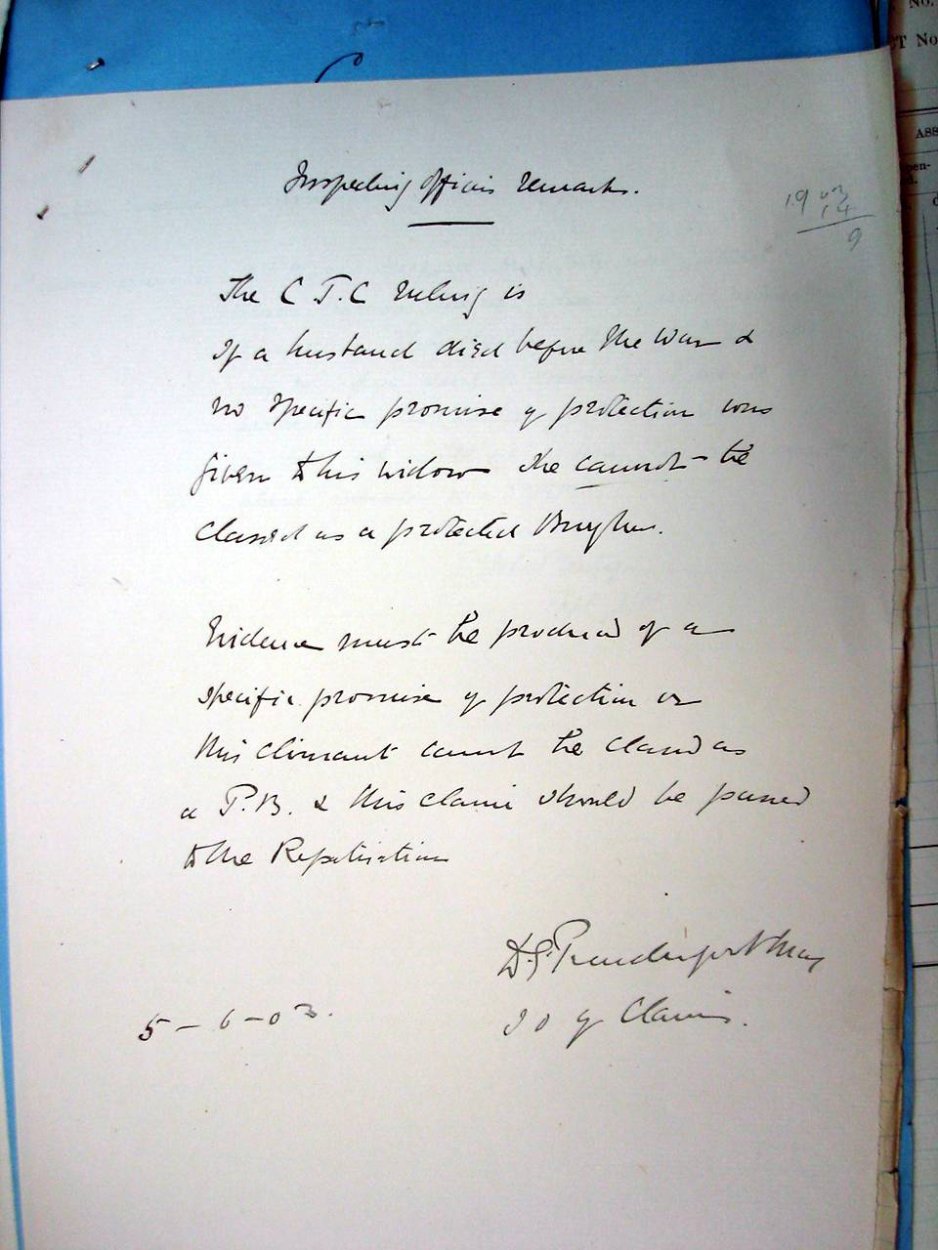 No.
T No
ASS
Inspecting Officers remarks.
19
9
The C J.C ruling is
If a husband died before the War &
no specific promise of protection was
given to his widow she cannot be
classed as a protected Burgher.
Evidence must be produced of a
specific promise of protection or
this claimant cannot be classed as
a P.B. & this claim should be passed
to the Repatriation
D.G. Prendergast
I O of Claims.
5-6-03.